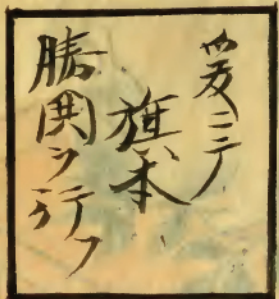 爰ニテ
旗本
勝閧ヲ行フ